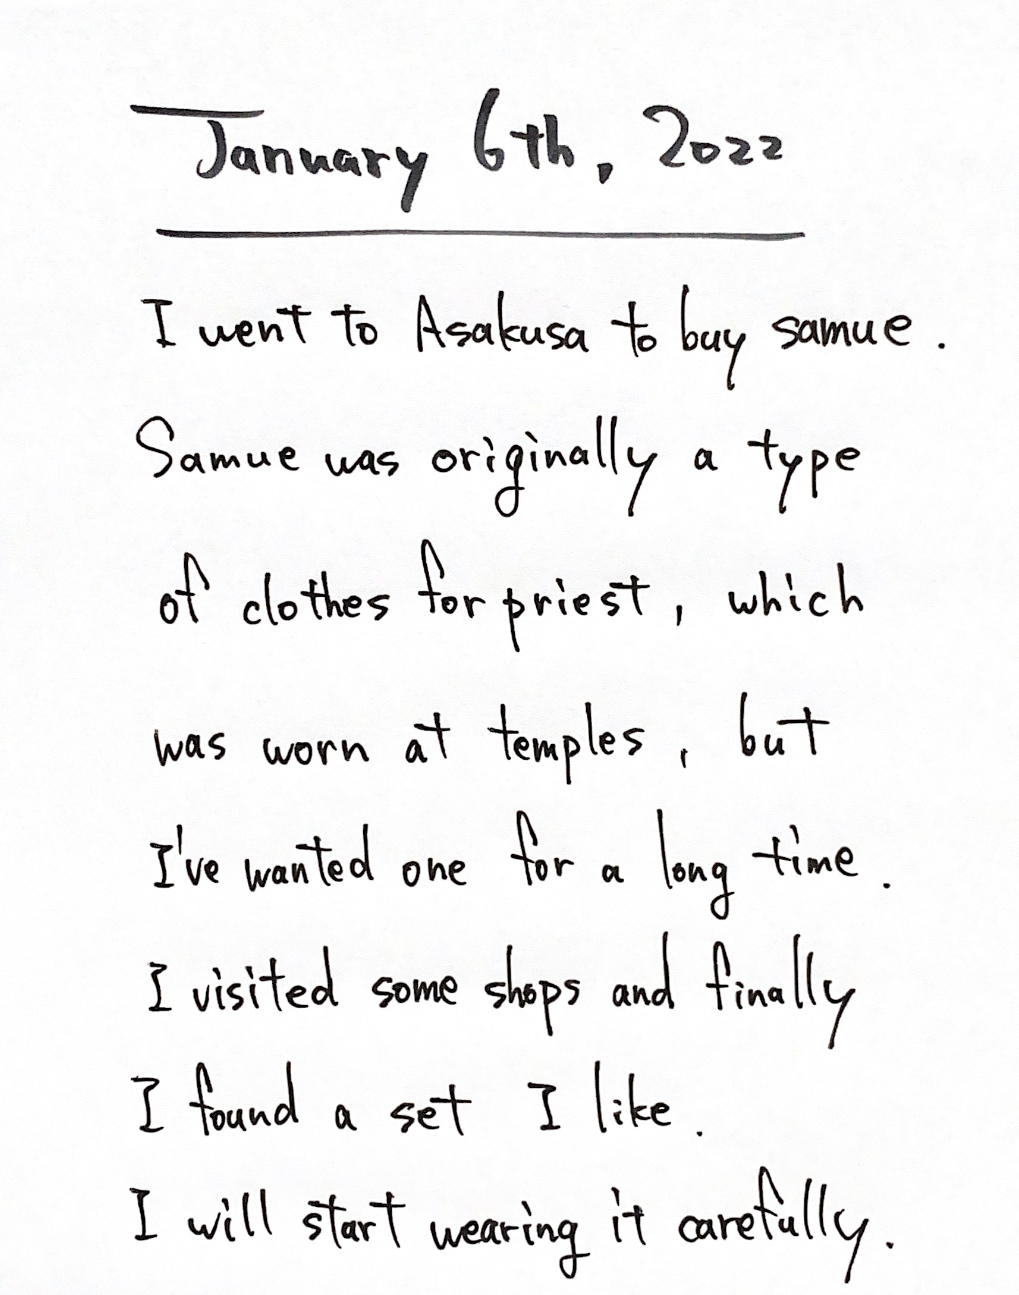 January 6th, 2022
I went to Asakusa to buy samue.
Samue was originally a type
of clothes for priest, which
was worn at temples, but
I've wanted one for a long time.
I visited some shops and finally
I found a set I like.
I will start wearing it carefully.